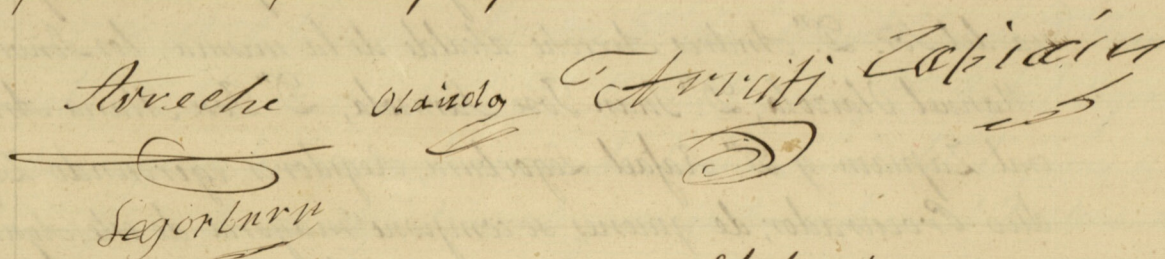 Arreche Olaindo Arruti Zapiain
Legorburu